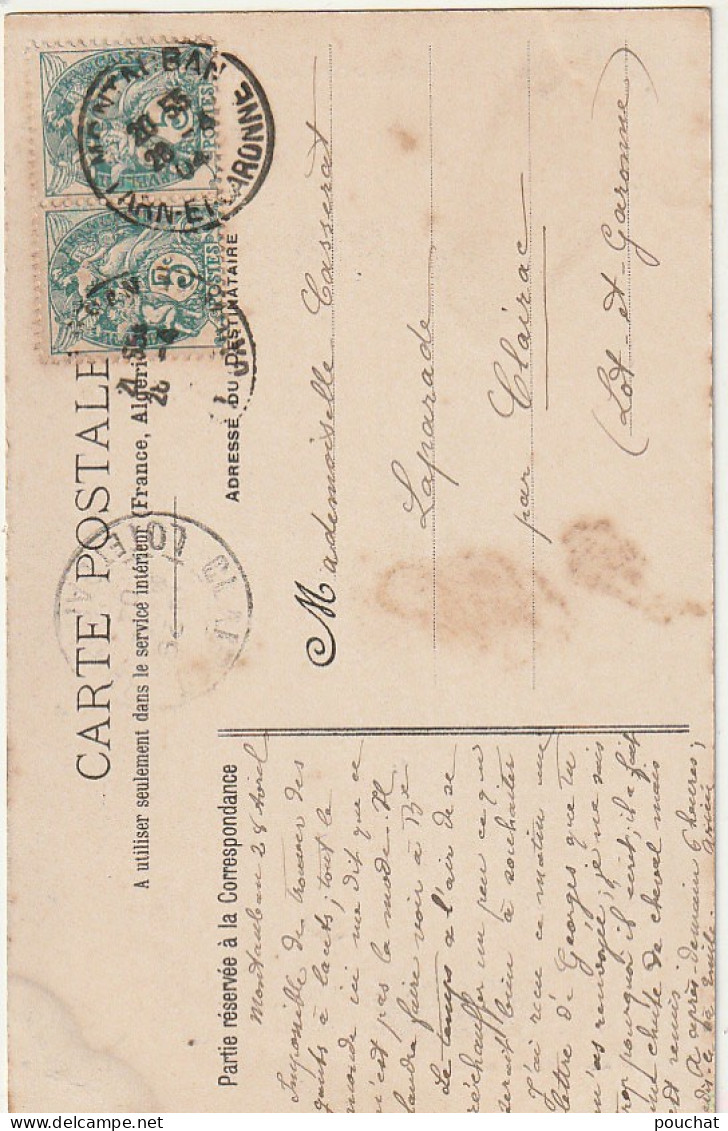 CARTE POSTALE
A utiliser seulement dans le service intérieur (France, Algérie
Partie réservée à la Correspondance
ADRESSE DU DESTINATAIRE
MONTAUBAN
TARN-ET-GARONNE
POSTES
5c
POSTES
Mademoiselle Casserat
Laparade
par Clairac
(Lot-et-Garonne)
Montauban 28 Avril
Impossible de trouver des
gants à lacets; tout le
monde ici m'a dit que ce
n'est pas la mode. Il
faudra faire voir à Bx
Le temps a l'air de se
réchauffer un peu ce qui
serait bien à souhaiter
J'ai reçu ce matin une
lettre de Georges que tu
m'as renvoyée; je ne sais
trop pourquoi il écrit; il a fait
une chute de cheval mais
est remis.
A après-demain 6 heures;
Emile
pouchat